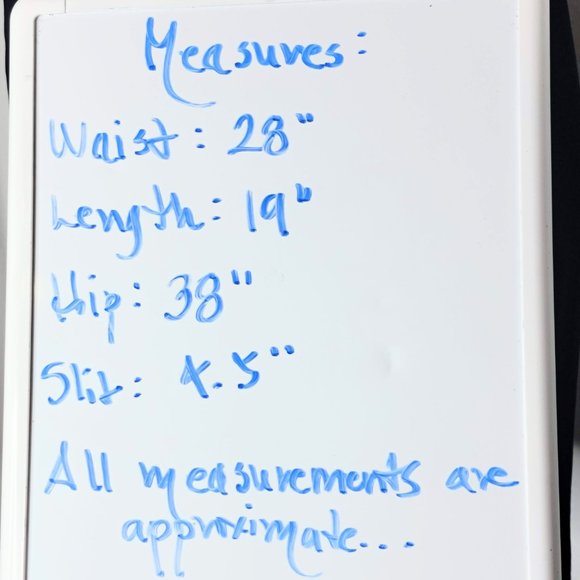 Measures:
Waist: 28"
Length: 19"
Hip: 38"
Slit: 4.5"
All measurements are
approximate...